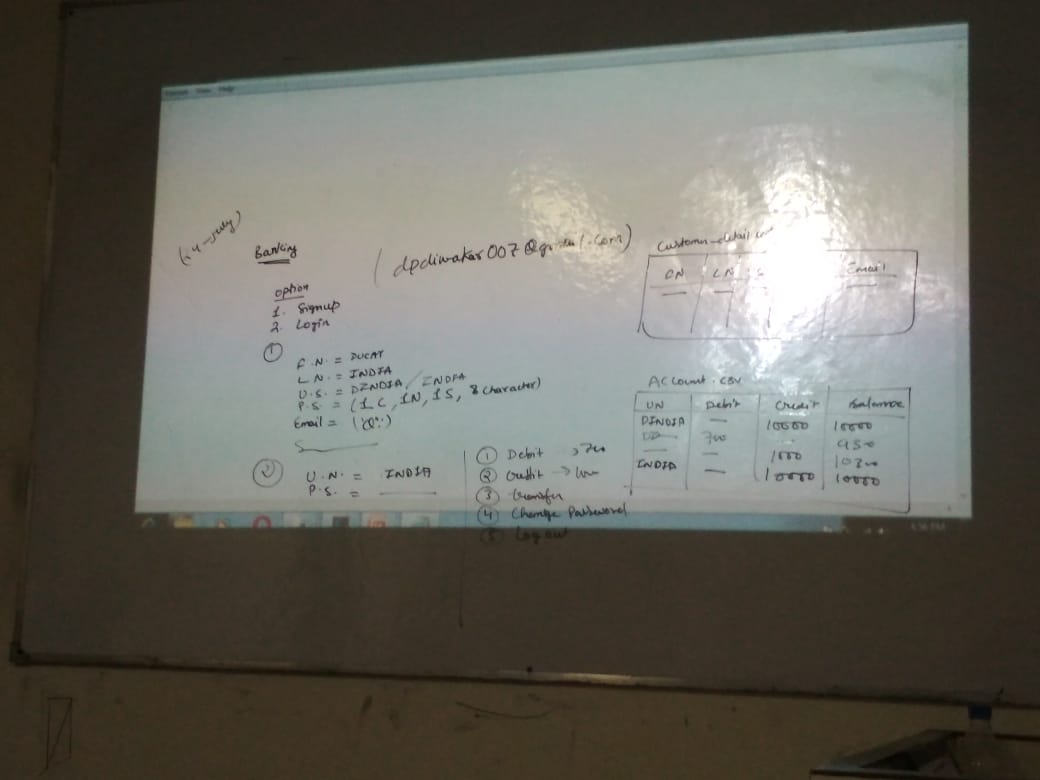 (14-July)
Banking
(dpdiwakar007@gmail.com)
option
1. Signup
2. Login
①
F.N. = DUCAT
L.N. = INDIA
U.S. = DINDIA / INDIA
P.S. = (1C, 1N, 1S, 8 character)
Email = ('@'.)
②
U.N. = INDIA
P.S. =
① Debit → 700
② Credit → 1000
③ transfer
④ Change Password
⑤ Log out
Customer-detail
LN
Email
Account.csv
UN Debit Credit Balance
DINDIA — 10000 10000
700
— 1000 10300
INDIA — 10000 10000